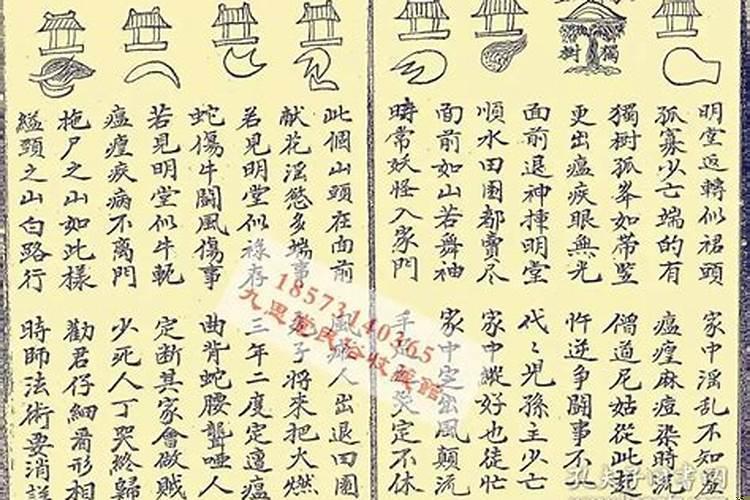 獨樹
明堂返轉似裙頭 家中淫乱不知羞
孤寡少亡端的有 瘟瘽麻痘染時流
獨樹孤峯如帶 僧道尼姑從此起
更出瘟疾眼無光 忤逆争鬪事不
面前退神揀明堂 代々兒孫主少亡
順水田園都賣尽 家中縱好也徒忙
面前如山若舞袖 家中定出風顛流
時常妖怪入家門 手定不休
此個山頭在面前 人出退田園
献花淫慾多端事 子將来把火燃
若見明堂似禄存 三年二度定遭瘟
蛇傷牛鬪風傷事 曲背蛇腰聾啞人
若見明堂似牛軛 定断其家會做贼
瘟瘽疾病不离門 少死人丁哭終歸
拖尸之山如此樣 勸君仔細看形相
縊頭之山白路行 時師法術要消詳
18573140365
九思堂民俗收藏館
孔夫子旧书网